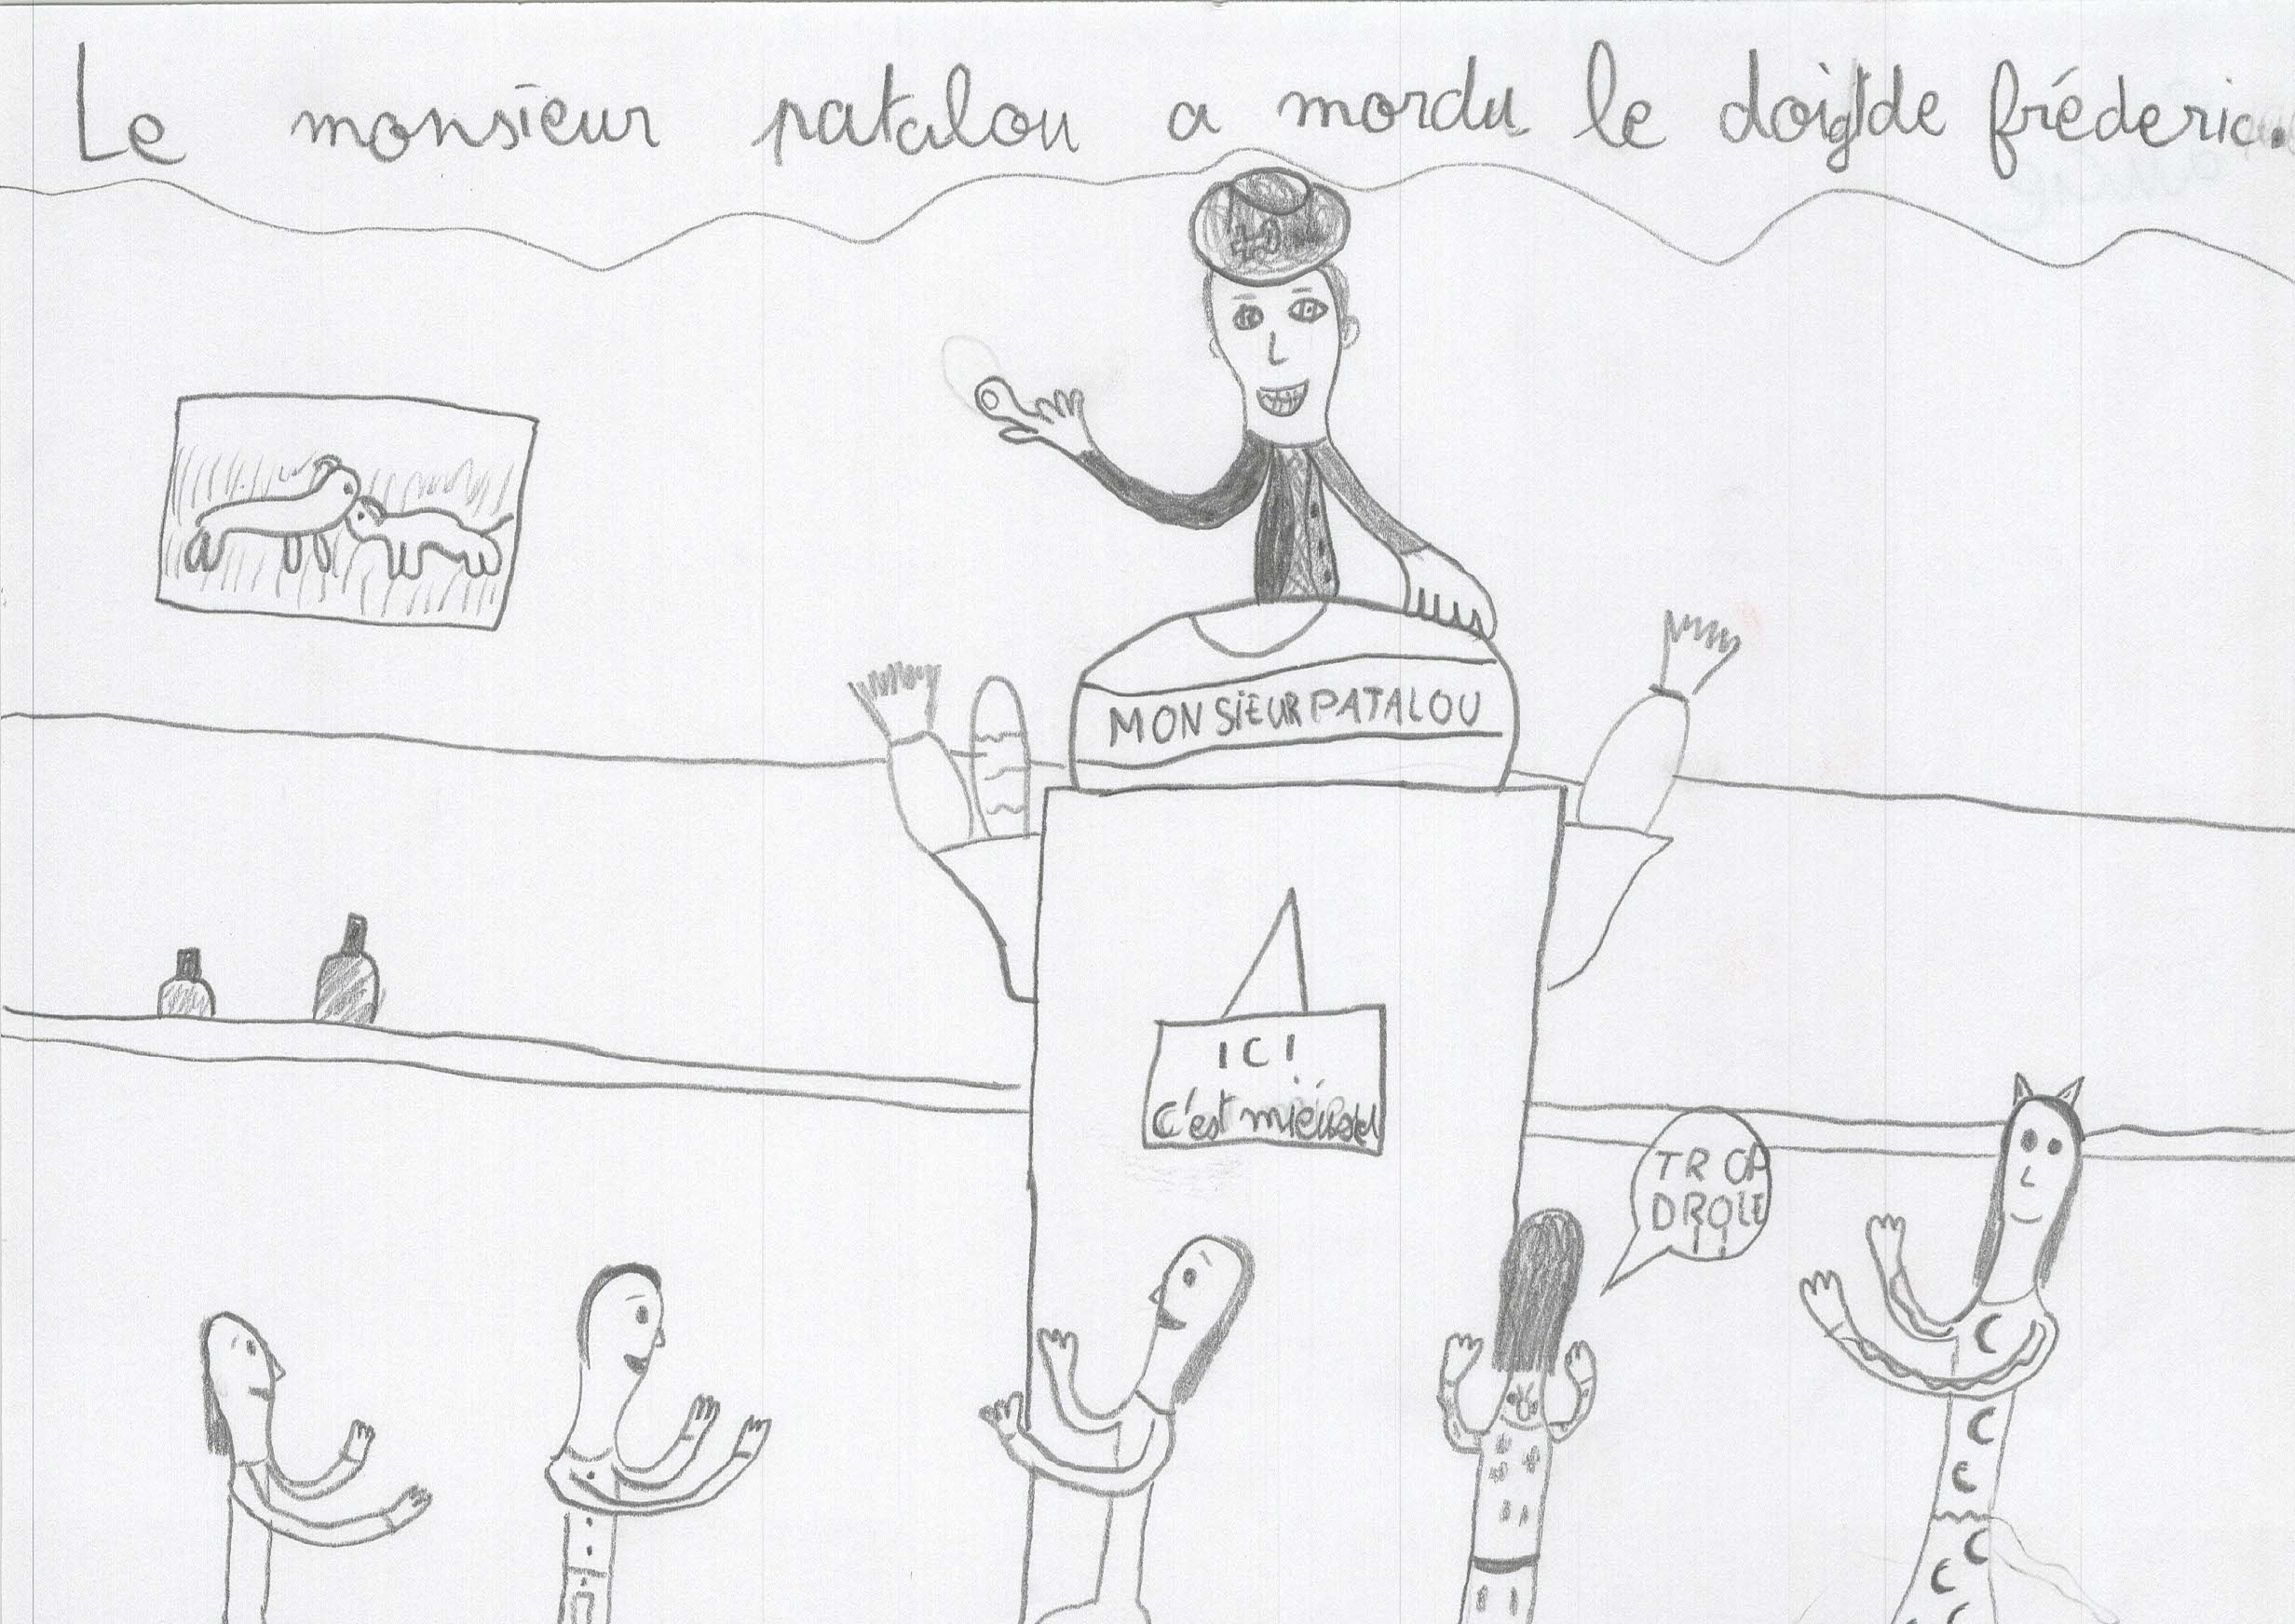 Le monsieur patalou a mordu le doigt de fréderic.
MONSIEUR PATALOU
ICI
c'est
TROP
DROLE
!!